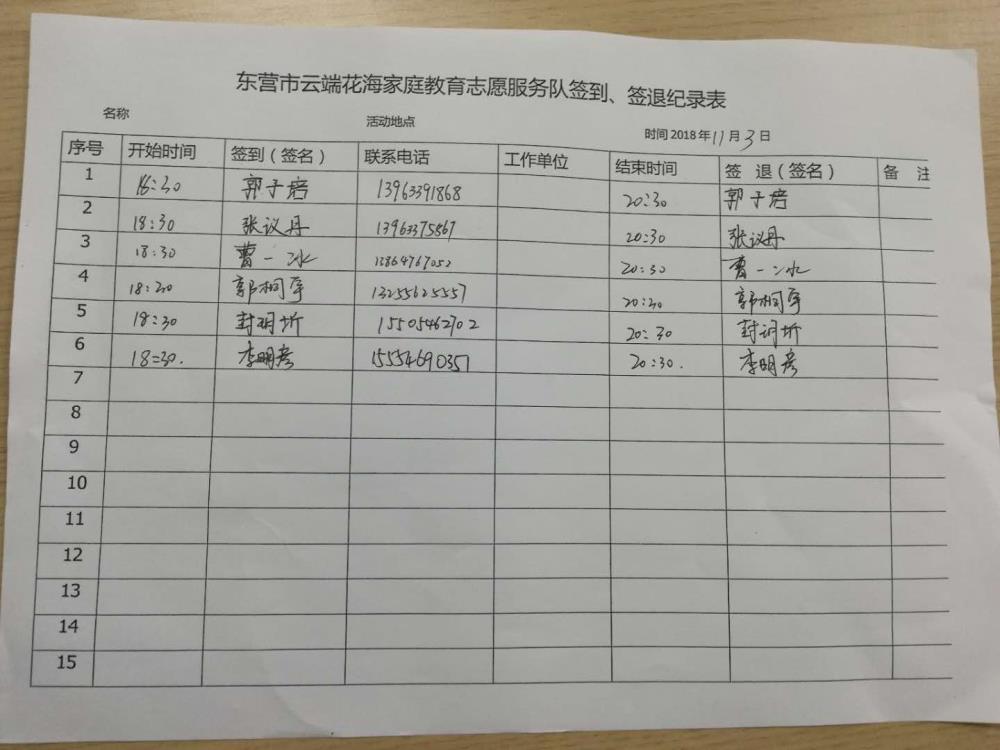 东营市云端花海家庭教育志愿服务队签到、签退纪录表
名称 活动地点 时间 2018 年 11 月 3 日
序号 开始时间 签到（签名） 联系电话 工作单位 结束时间 签 退（签名） 备 注
1 18:30 郭子培 13963391868 20:30 郭子培
2 18:30 张议丹 13963375867 20:30 张议丹
3 18:30 曹一冰 13864767052 20:30 曹一冰
4 18:30 郭桐军 13255625557 20:30 郭桐军
5 18:30 15505462702 20:30
6 18=30. 李明彦 15554690357 20:30. 李明彦
7
8
9
10
11
12
13
14
15